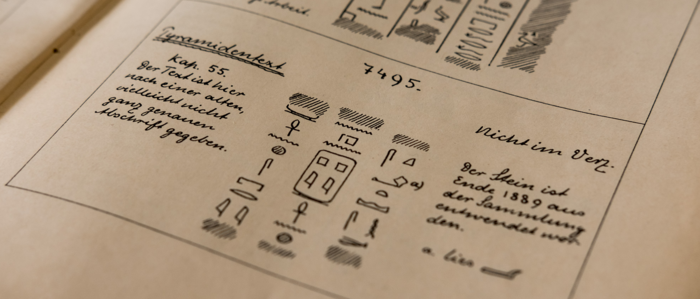 Arbeit.
Pyramidentext
Kap. 55.
Der Text ist hier
nach einer alten,
vielleicht nicht
ganz genauen
Abschrift gegeben.
7495.
a)
Nicht im Verz.
Der Stein ist
Ende 1889 aus
der Sammlung
entwendet wor
den.
a. lies